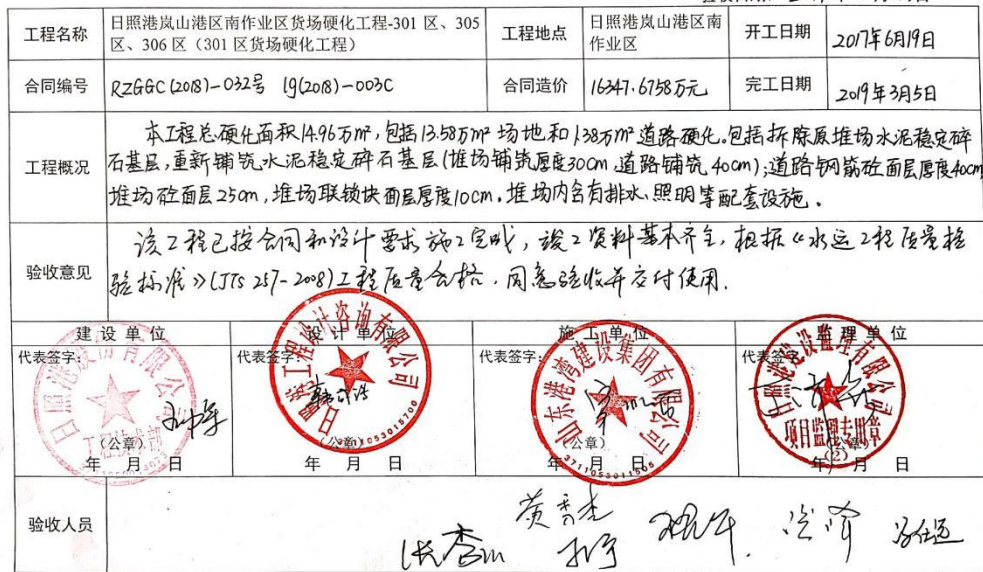 工程名称 日照港岚山港区南作业区货场硬化工程-301 区、305 区、306 区（301 区货场硬化工程） 工程地点 日照港岚山港区南作业区 开工日期 2017年6月19日
合同编号 RZGGC(2018)-032号 lg(2018)-003C 合同造价 16347.6758万元 完工日期 2019年3月5日
工程概况
本工程总硬化面积14.96万m²,包括13.58万m²场地和1.38万m²道路硬化.包括拆除原堆场水泥稳定碎
石基层,重新铺筑水泥稳定碎石基层(堆场铺筑厚度30cm,道路铺筑40cm);道路钢筋砼面层厚度40cm
堆场砼面层25cm,堆场联锁块面层厚度10cm.堆场内含有排水、照明等配套设施。
验收意见
该工程已按合同和设计要求施工完成,竣工资料基本齐全,根据《水运工程质量检
验标准》(JTS 257-2008)工程质量合格,同意验收并交付使用.
建设单位 设计单位 施工单位 监理单位
代表签字： 代表签字： 代表签字： 代表签字：
日照港股份有限公司
日照港工程设计咨询有限公司
山东港湾建设集团有限公司
3711053011505
日照港建设监理有限公司
项目监理专用章
(2)
（公章） （公章） （公章） （公章）
年 月 日 年 月 日 年 月 日 年 月 日
验收人员